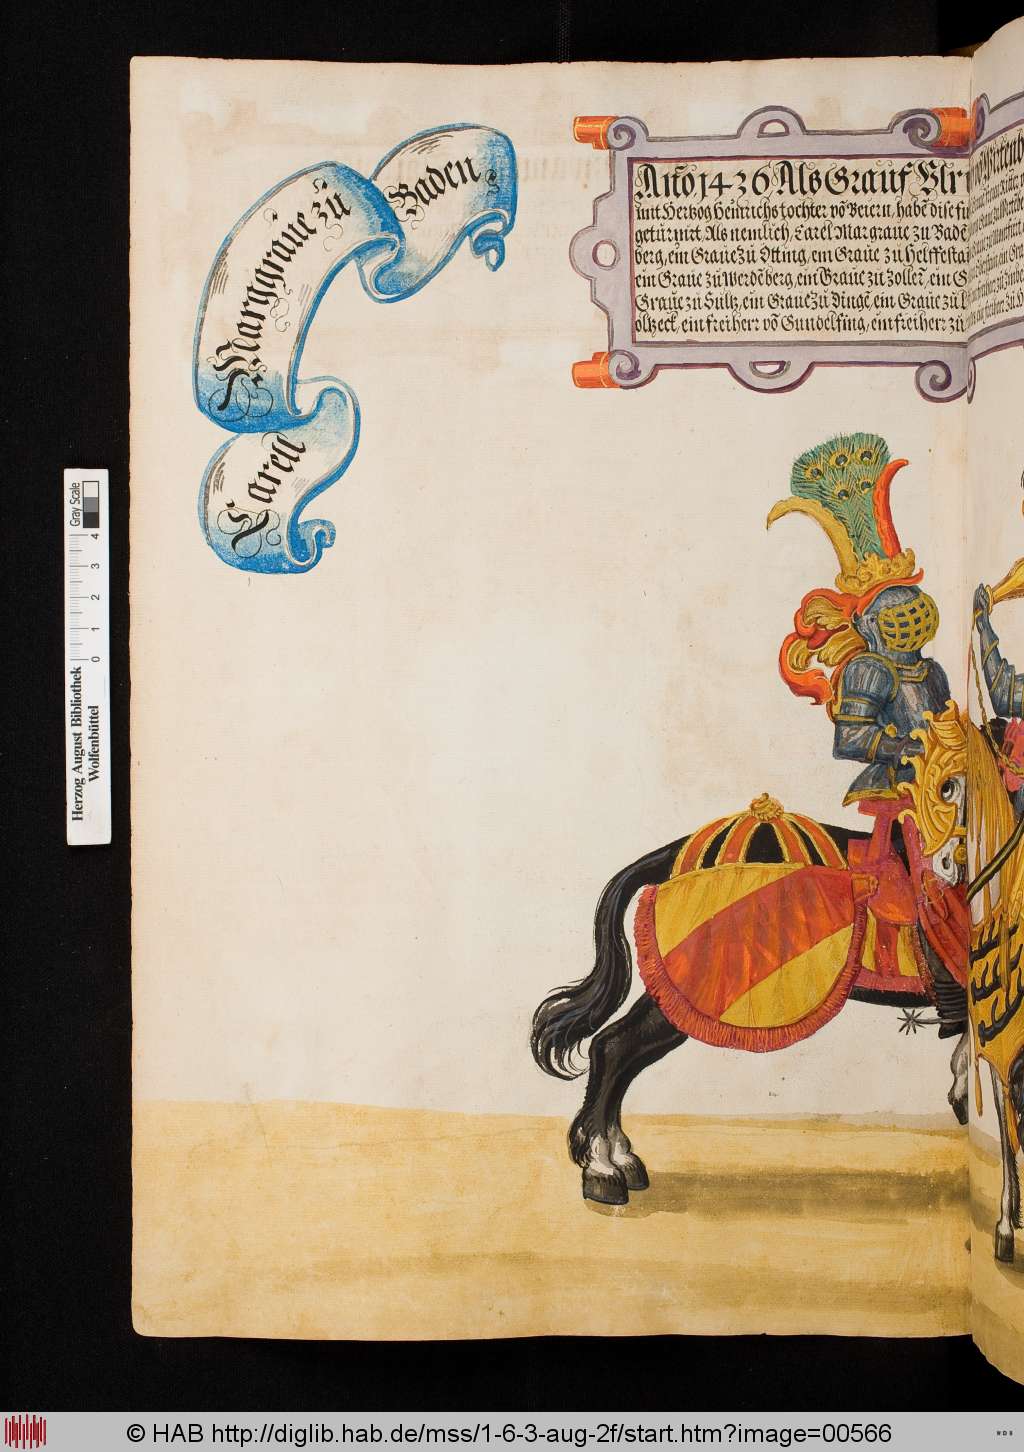 Carell
Marggraue zů
Baden
Año. 1436 Als Grauf Vlr
mit Hertzog Heinrichs tochter võ Beiern, habẽ dise fu
getŭrnirt, Als nemlich, Carel Margraue zu Badẽ
berg, ein Graue zů Otting, ein Graue zů Helffestai
ein Graue zů Werdẽberg, ein Graue zů zollerñ, ein G
Graue zů Sŭltz, ein Graue zů
oltzeck, ein freiherr võ Gundelfing, ein freiherr zů
Herzog August Bibliothek
Wolfenbüttel
0 1 2 3 4
Gray Scale
© HAB http://diglib.hab.de/mss/1-6-3-aug-2f/start.htm?image=00566